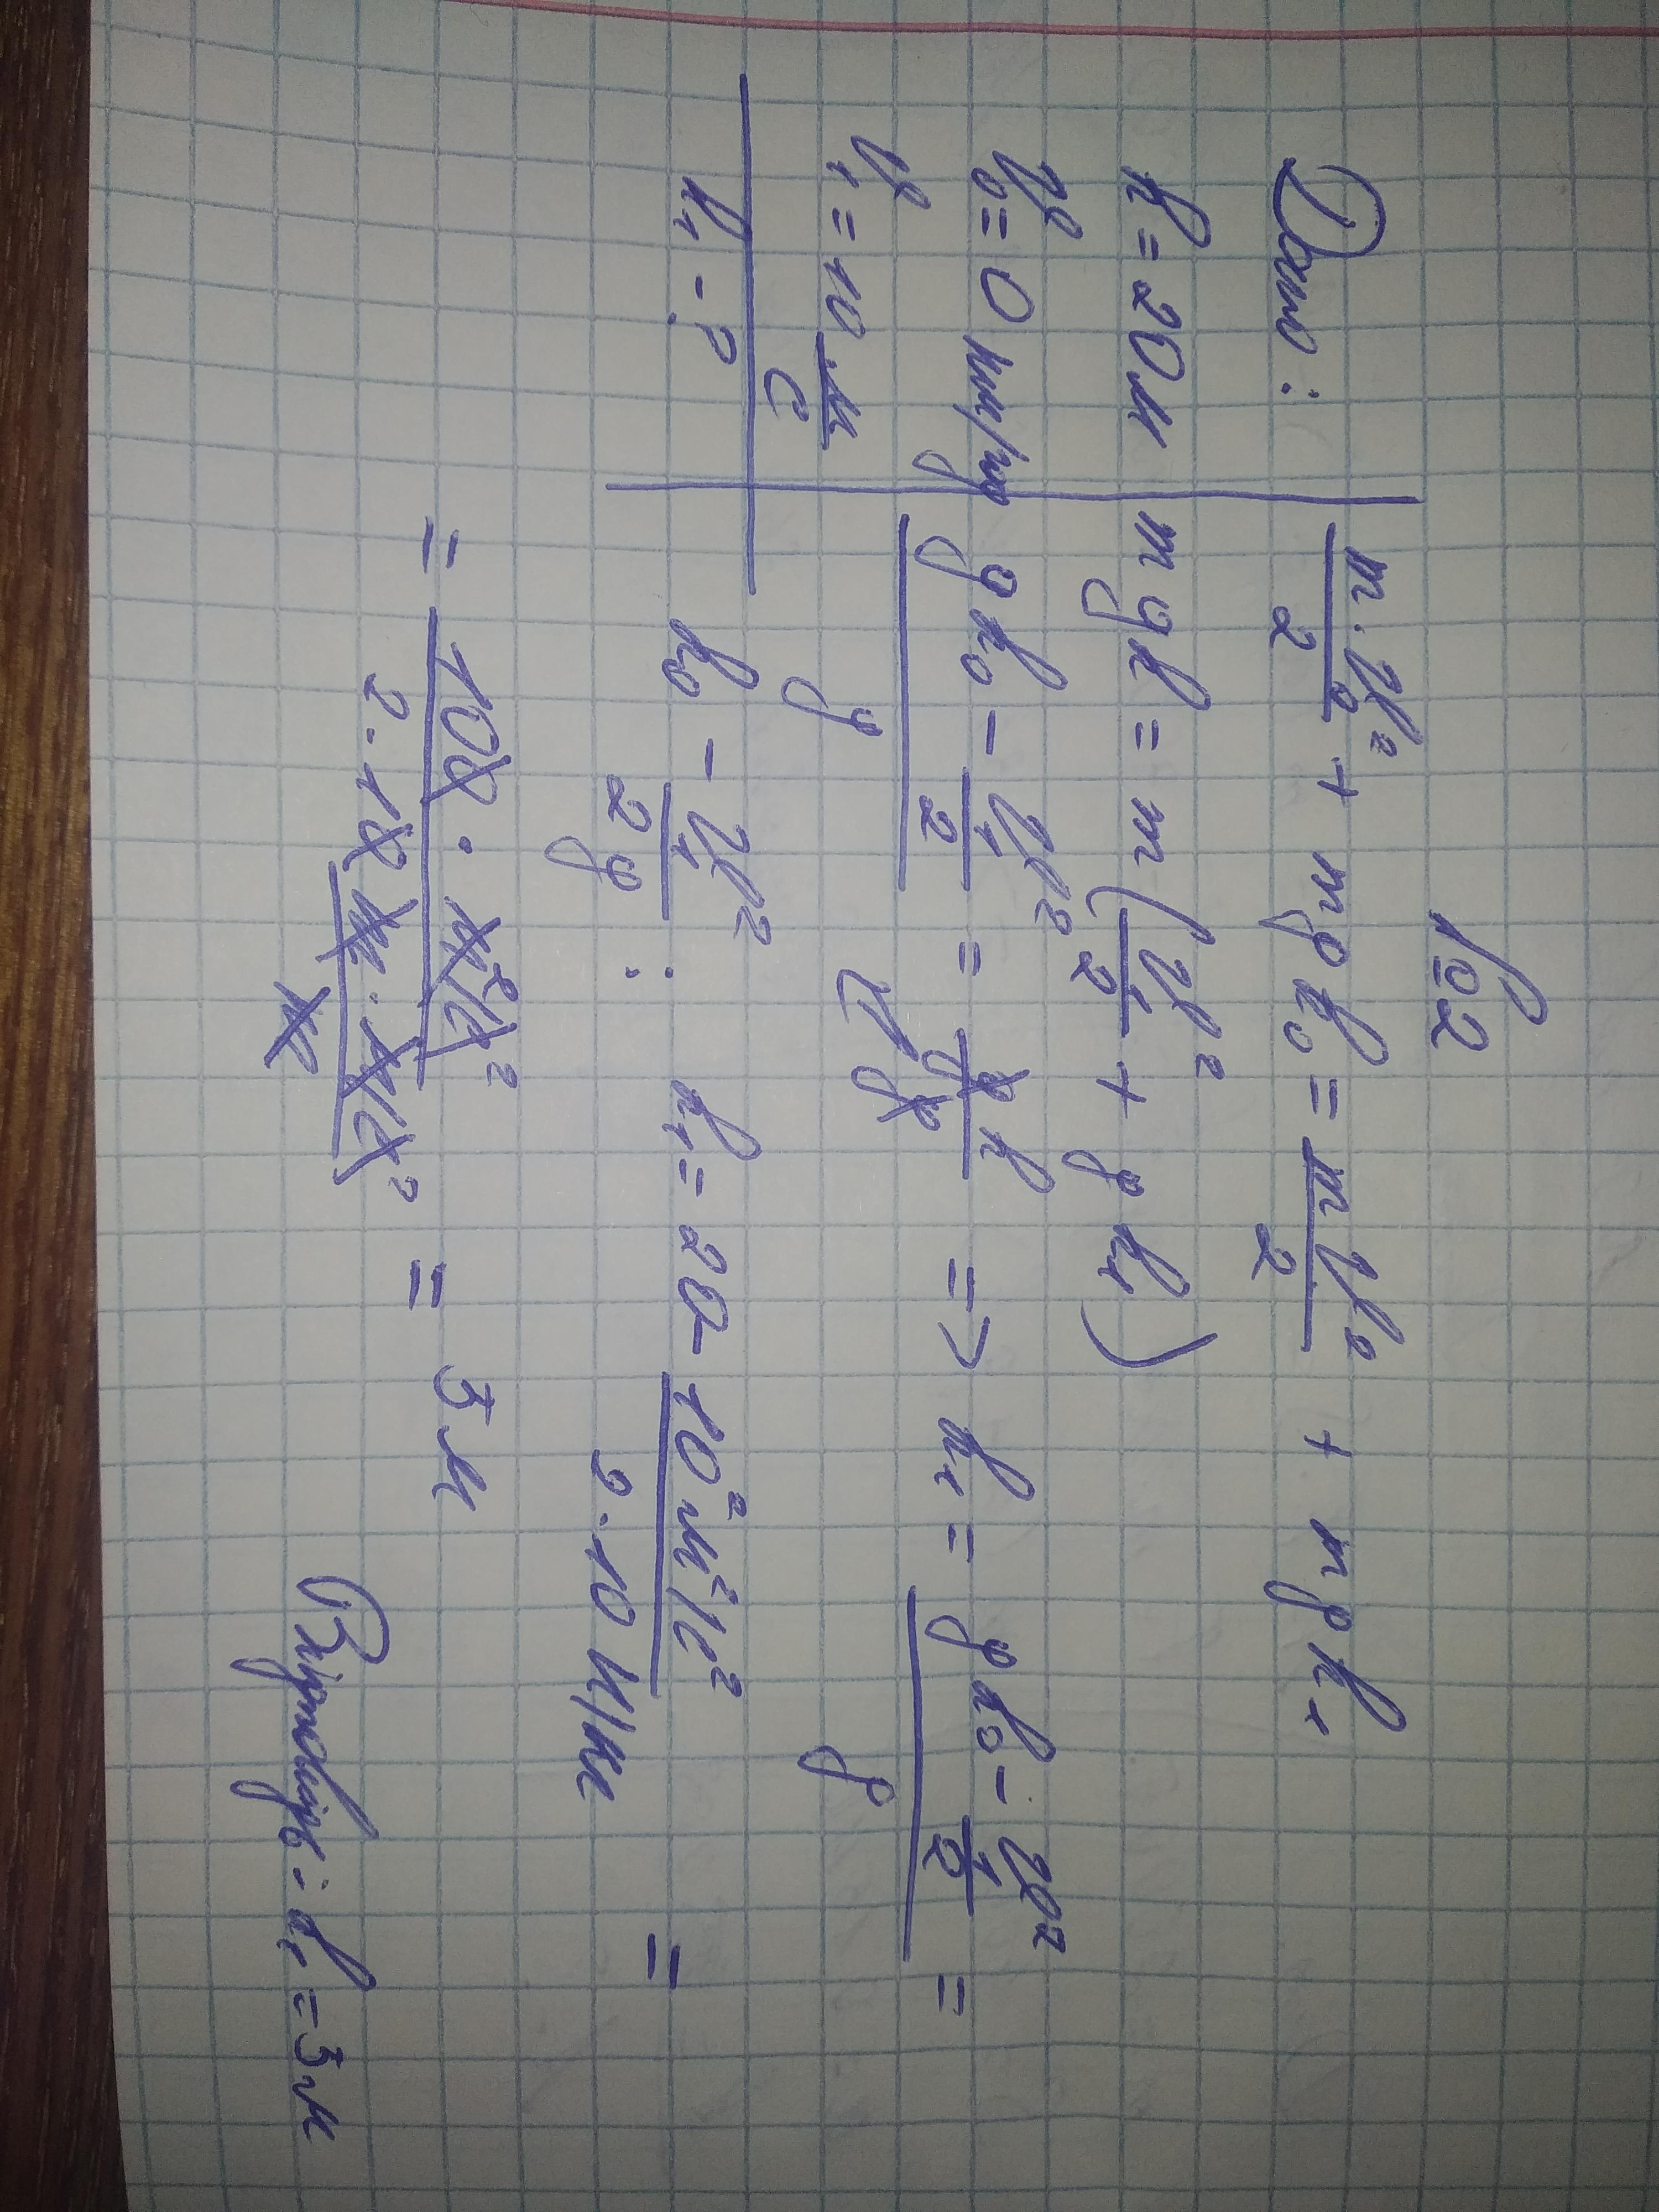 №2
Дано:
h = 20 м
v₀ = 0 км/год
v₁ = 10 м/с
h₁ - ?
m·v₀²/2 + mgh₀ = mv₁²/2 + mgh₁
mgh = m(v₁²/2 + gh₁)
(gh₀ - v₁²/2)/g = gh/g => h₁ = (gh₀ - v₁²/2)/g =
h₀ - v₁²/2g : h₁ = 20 - 10² м²/с² / 2·10 Н/кг =
= 100 · м²/с² / 2·10 кг·м/с²/кг = 3 м
Відповідь: h₁ = 3 м